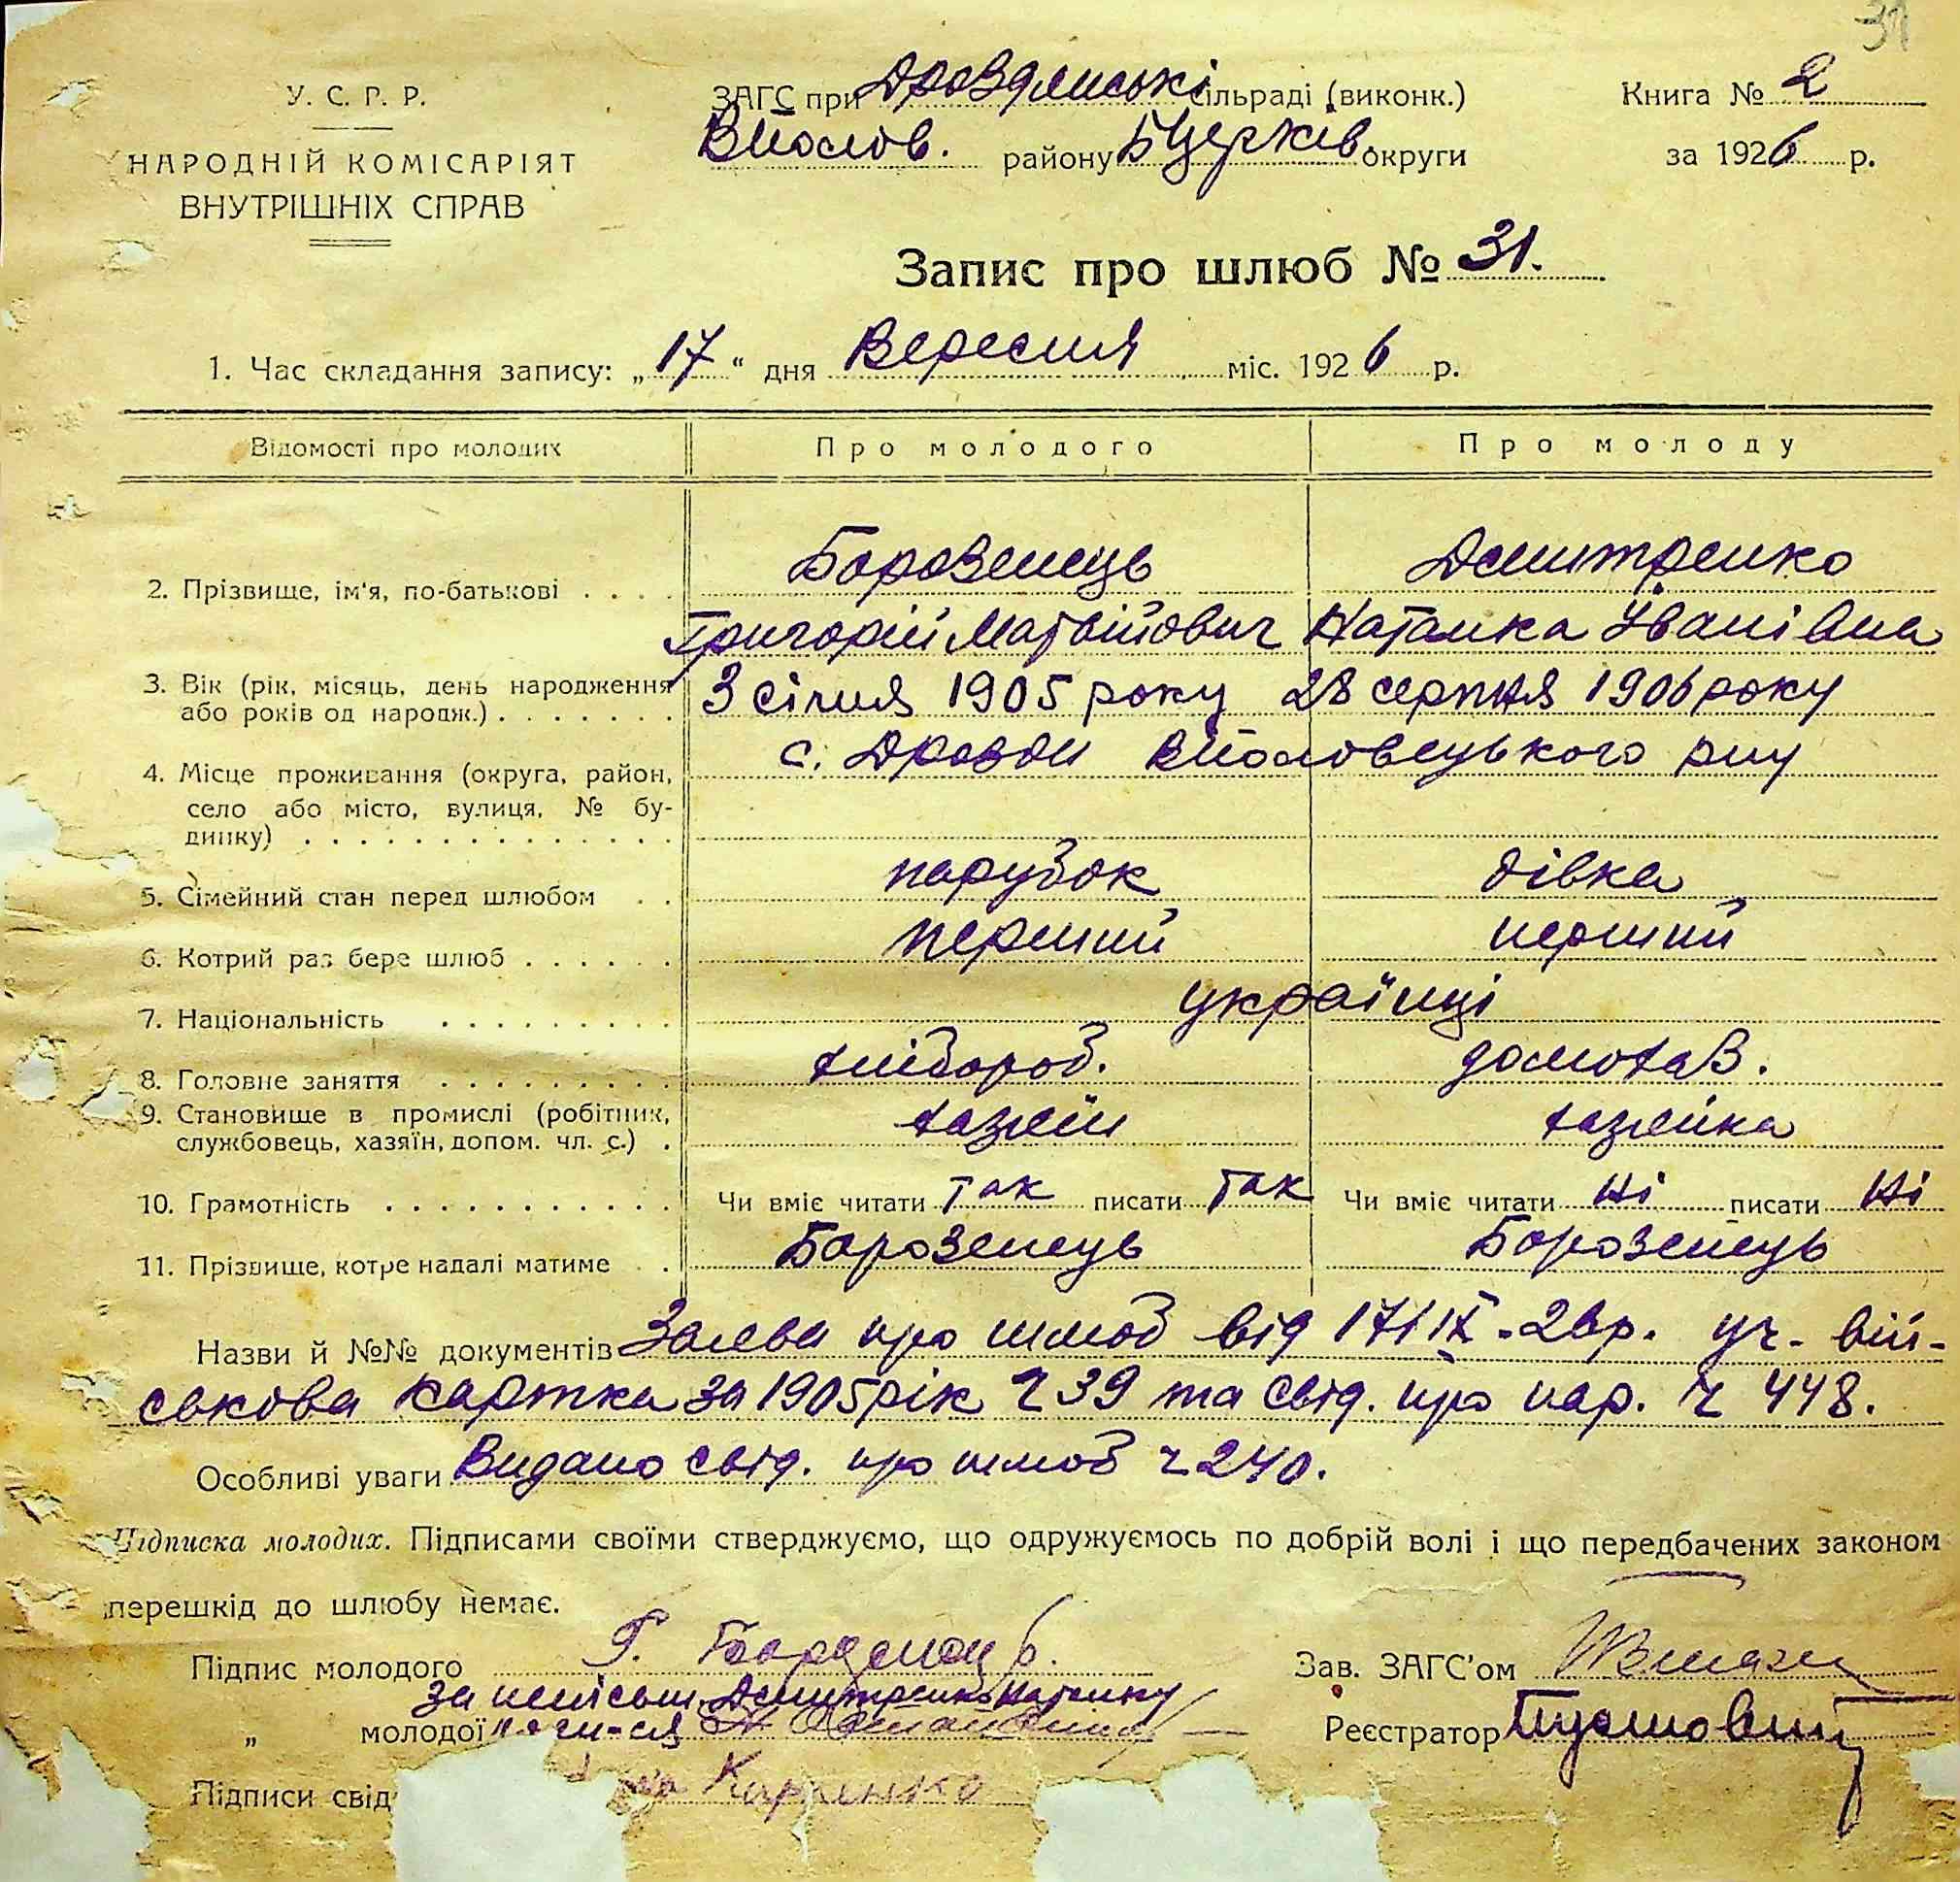 31
У. С. Р. Р.
НАРОДНІЙ КОМІСАРІЯТ
ВНУТРІШНІХ СПРАВ
ЗАГС при Дроздянські сільраді (виконк.)
ВПолов. району БЦерків округи
Книга № 2
за 1926 р.
Запис про шлюб № 31.
1. Час складання запису: „17“ дня Вересня міс. 1926 р.
Відомості про молодих Про молодого Про молоду
2. Прізвище, ім'я, по-батькові . . . . Борозенець Дмитренко
Григорій Матвійович Наталка Іванівна
3. Вік (рік, місяць, день народження або років од народж.) . . . . . . . 3 січня 1905 року 28 серпня 1906 року
4. Місце проживання (округа, район, село або місто, вулиця, № будинку) . . . . . . . . . . . . . . с. Дрозди ВПоловецького рну
5. Сімейний стан перед шлюбом . . парубок дівка
6. Котрий раз бере шлюб . . . . . . перший перший
7. Національність . . . . . . . . . українці
8. Головне заняття . . . . . . . . . хлібороб. домохаз.
9. Становище в промислі (робітник, службовець, хазяїн, допом. чл. с.) . хазяїн хазяйка
10. Грамотність . . . . . . . . . . . Чи вміє читати Так писати Так Чи вміє читати Ні писати Ні
11. Прізвище, котре надалі матиме . . Борозенець Борозенець
Назви й №№ документів Заява про шлюб від 17/IX-26р. уч. вій-
ськова картка за 1905 рік ч 39 та свід. про нар. ч 448.
Особливі уваги Видано свід. про шлюб ч 240.
Підписка молодих. Підписами своїми стверджуємо, що одружуємось по добрій волі і що передбачених законом
перешкід до шлюбу немає.
Підпис молодого Г. Борозенець.
Зав. ЗАГС'ом
за неписьм. Дмитренко Наталку
„ молодої
Реєстратор
Підписи свід Карпенко